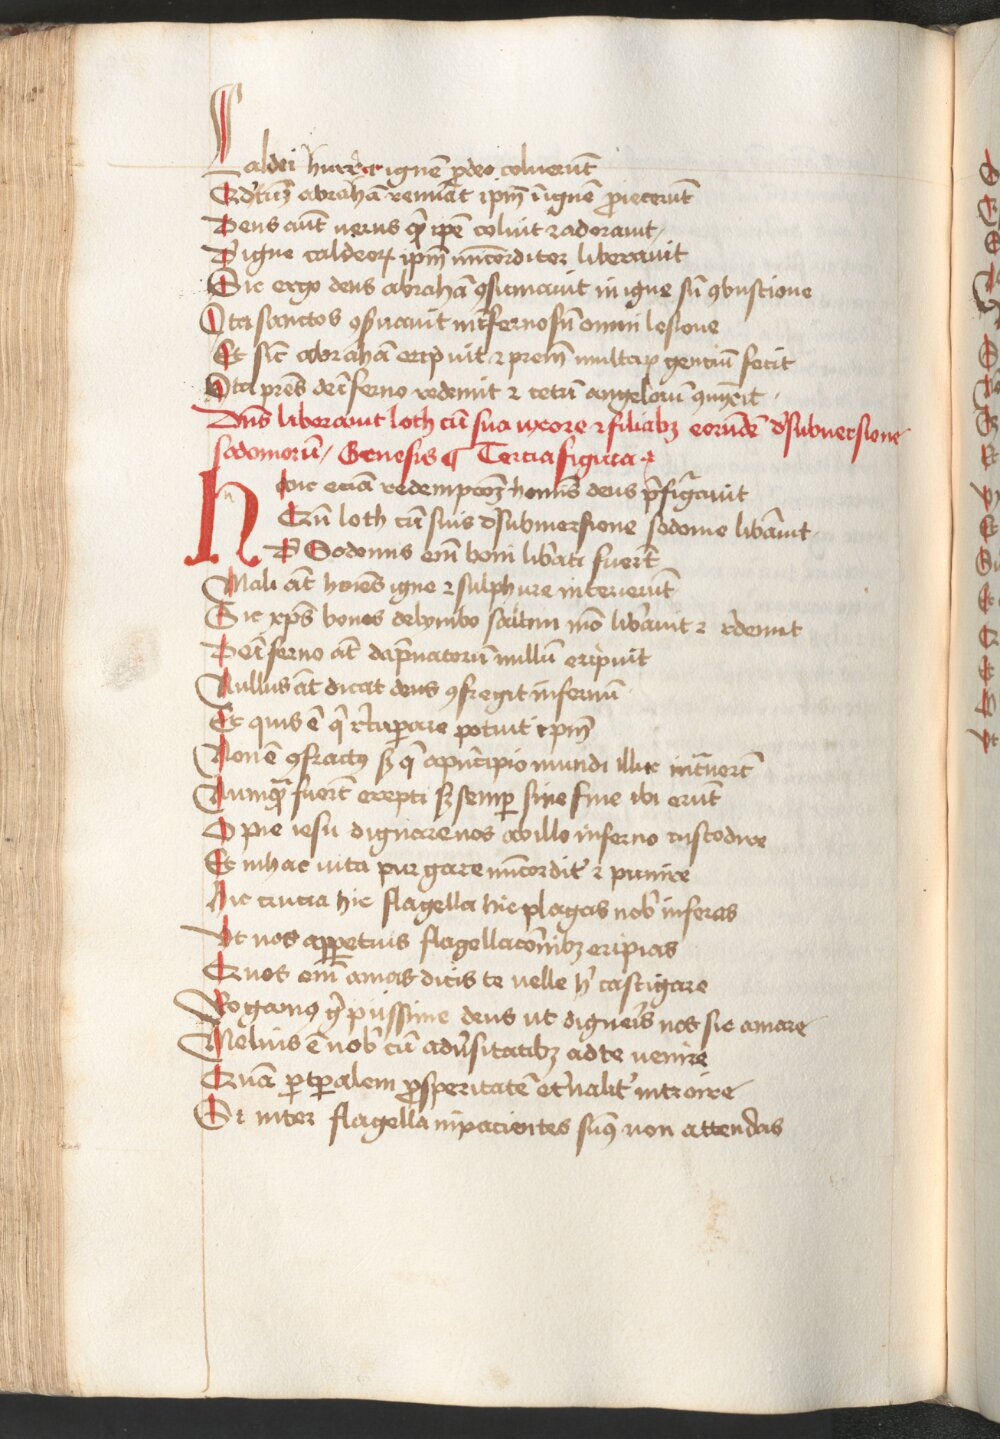 Caldei hurr et ignē ꝓ deo coluerūt
Et dictū abrahā renuāt ipm̄ ī ignē ꝓiecerūt
Deus aūt uerus quē ipse coluit ⁊ adorauit
De igne caldeoꝝ ipm̄ mīcorditer liberauit
Sic ergo deus abrahā ꝯsuruauit in igne sn̄ ꝯbustione
Ita sanctos ꝯſuauit in īferno sn̄ omni lesione
Et sic abrahā eripuit ⁊ prem̄ multaꝝ gentiū fecit
Ita pres̄ de īferno redemit ⁊ cetui angeloru̅ ꝯiunxit
Dn̄s liberauit loth cū sua uxore ⁊ filiabꝫ eorundē d' subuersione
sodomorū Genesis ¶ Tercia figura
Hoc eciā redempcōꝫ hoīnis deus p̄figurauit
Cū loth cū suis d' submersione sodome libāuit
De Sodomis em̄ boni libati fuert̄
Mali aūt hoīes igne ⁊ sulphure interierūt
Sic xp̄s bonos de lymbo saltim mō libauit ⁊ r̄demit
De īferno aūt dāpnatorū nullū eripuit
Nullus aūt dicat deus ꝯfregit infernū
Et quis ē qui r̄taparare potuit ipm̄
Non ē ꝯfractꝰ sꝫ qi a pn̄cipio mundi illuc int̄uert̄
Nunqua̅ fuert̄ erepti sꝫ semꝑ sine fine ibi erūt
O pie iesu dignare nos ab illo inferno custodire
Et in hac uita purgare mīcordit' ⁊ punire
Hic crucia hic flagella hic plagas nob' inferas
Ut nos a ꝑpetuis flagellacōnibꝫ eripias
Quos em̄ amas dicis te uelle h' castigare
Rogamꝰ gͥ piissime deus ut digneris nos sic amare
Melius ē nob' cū adūsitatibꝫ ad te uenire
Quā ꝑ tꝑalem ꝓsperitatē et'nalit' introire
Si inter flagella inpacientes sumꝰ non attendas